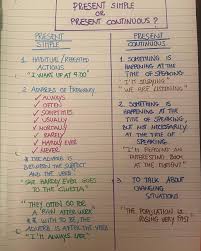 PRESENT SIMPLE
OR
PRESENT CONTINUOUS?
PRESENT
SIMPLE
1. HABITUAL / REPEATED
ACTIONS
"I WAKE UP AT 9.00"
2. ADVERBS OF FREQUENCY
✓ ALWAYS
✓ OFTEN
✓ SOMETIMES
✓ USUALLY
✓ NORMALLY
✓ RARELY
✓ HARDLY EVER
✓ NEVER
* THE ADVERB IS
BETWEEN THE SUBJECT
AND THE VERB.
"SHE HARDLY EVER GOES
TO THE CINEMA"
"THEY OFTEN GO FOR
A RUN AFTER WORK"
* WITH TO BE THE
ADVERB IS AFTER THE VERB
"I'M ALWAYS LATE"
PRESENT
CONTINUOUS
1. SOMETHING IS
HAPPENING AT THE
TIME OF SPEAKING
"I'M STUDYING"
"WE ARE LISTENING"
2. SOMETHING IS
HAPPENING AT THE
TIME OF SPEAKING,
BUT NOT NECESSARILY
AT THE TIME OF
SPEAKING.
"I'M READING AN
INTERESTING BOOK
AT THE MOMENT"
3. TO TALK ABOUT
CHANGING
SITUATIONS
"THE POPULATION IS
RISING VERY FAST"